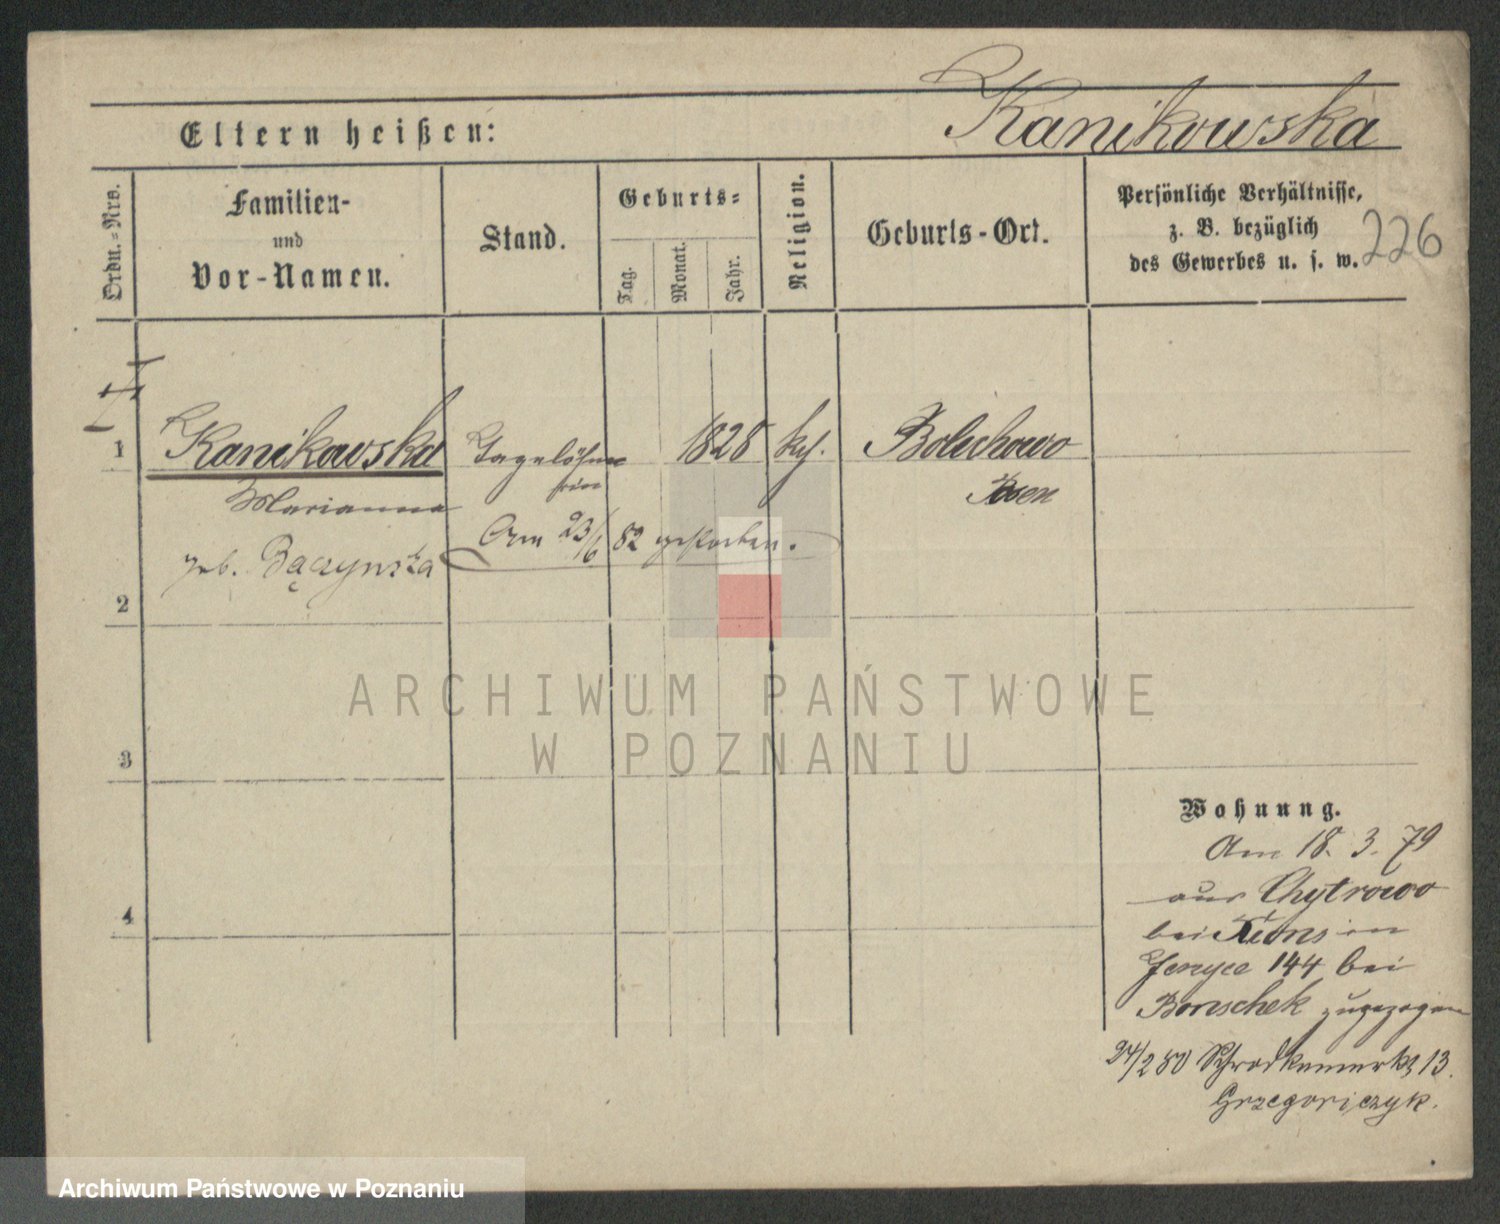 Kanikowska
Eltern heißen:
Ordn.-Nrs.
Familien-
und
Vor-Namen.
Stand.
Geburts-
Tag.
Monat.
Jahr.
Religion.
Geburts-Ort.
Persönliche Verhältnisse,
z. B. bezüglich
des Gewerbes u. s. w.
226
1
Kanikowska
Tagelöhne
rin
1828
kth.
Bolechowo
Posen
Marianna
geb. Bączynska
Am 23/6 82 gestorben.
2
3
4
ARCHIWUM PAŃSTWOWE
W POZNANIU
Wohnung.
Am 18. 3. 79
aus Chytrowo
bei Xions in
Jersyce 144 bei
Boruschek zugezogen
24/2 80 Schrodkamarkt 13.
Grzegorczyk.
Archiwum Państwowe w Poznaniu